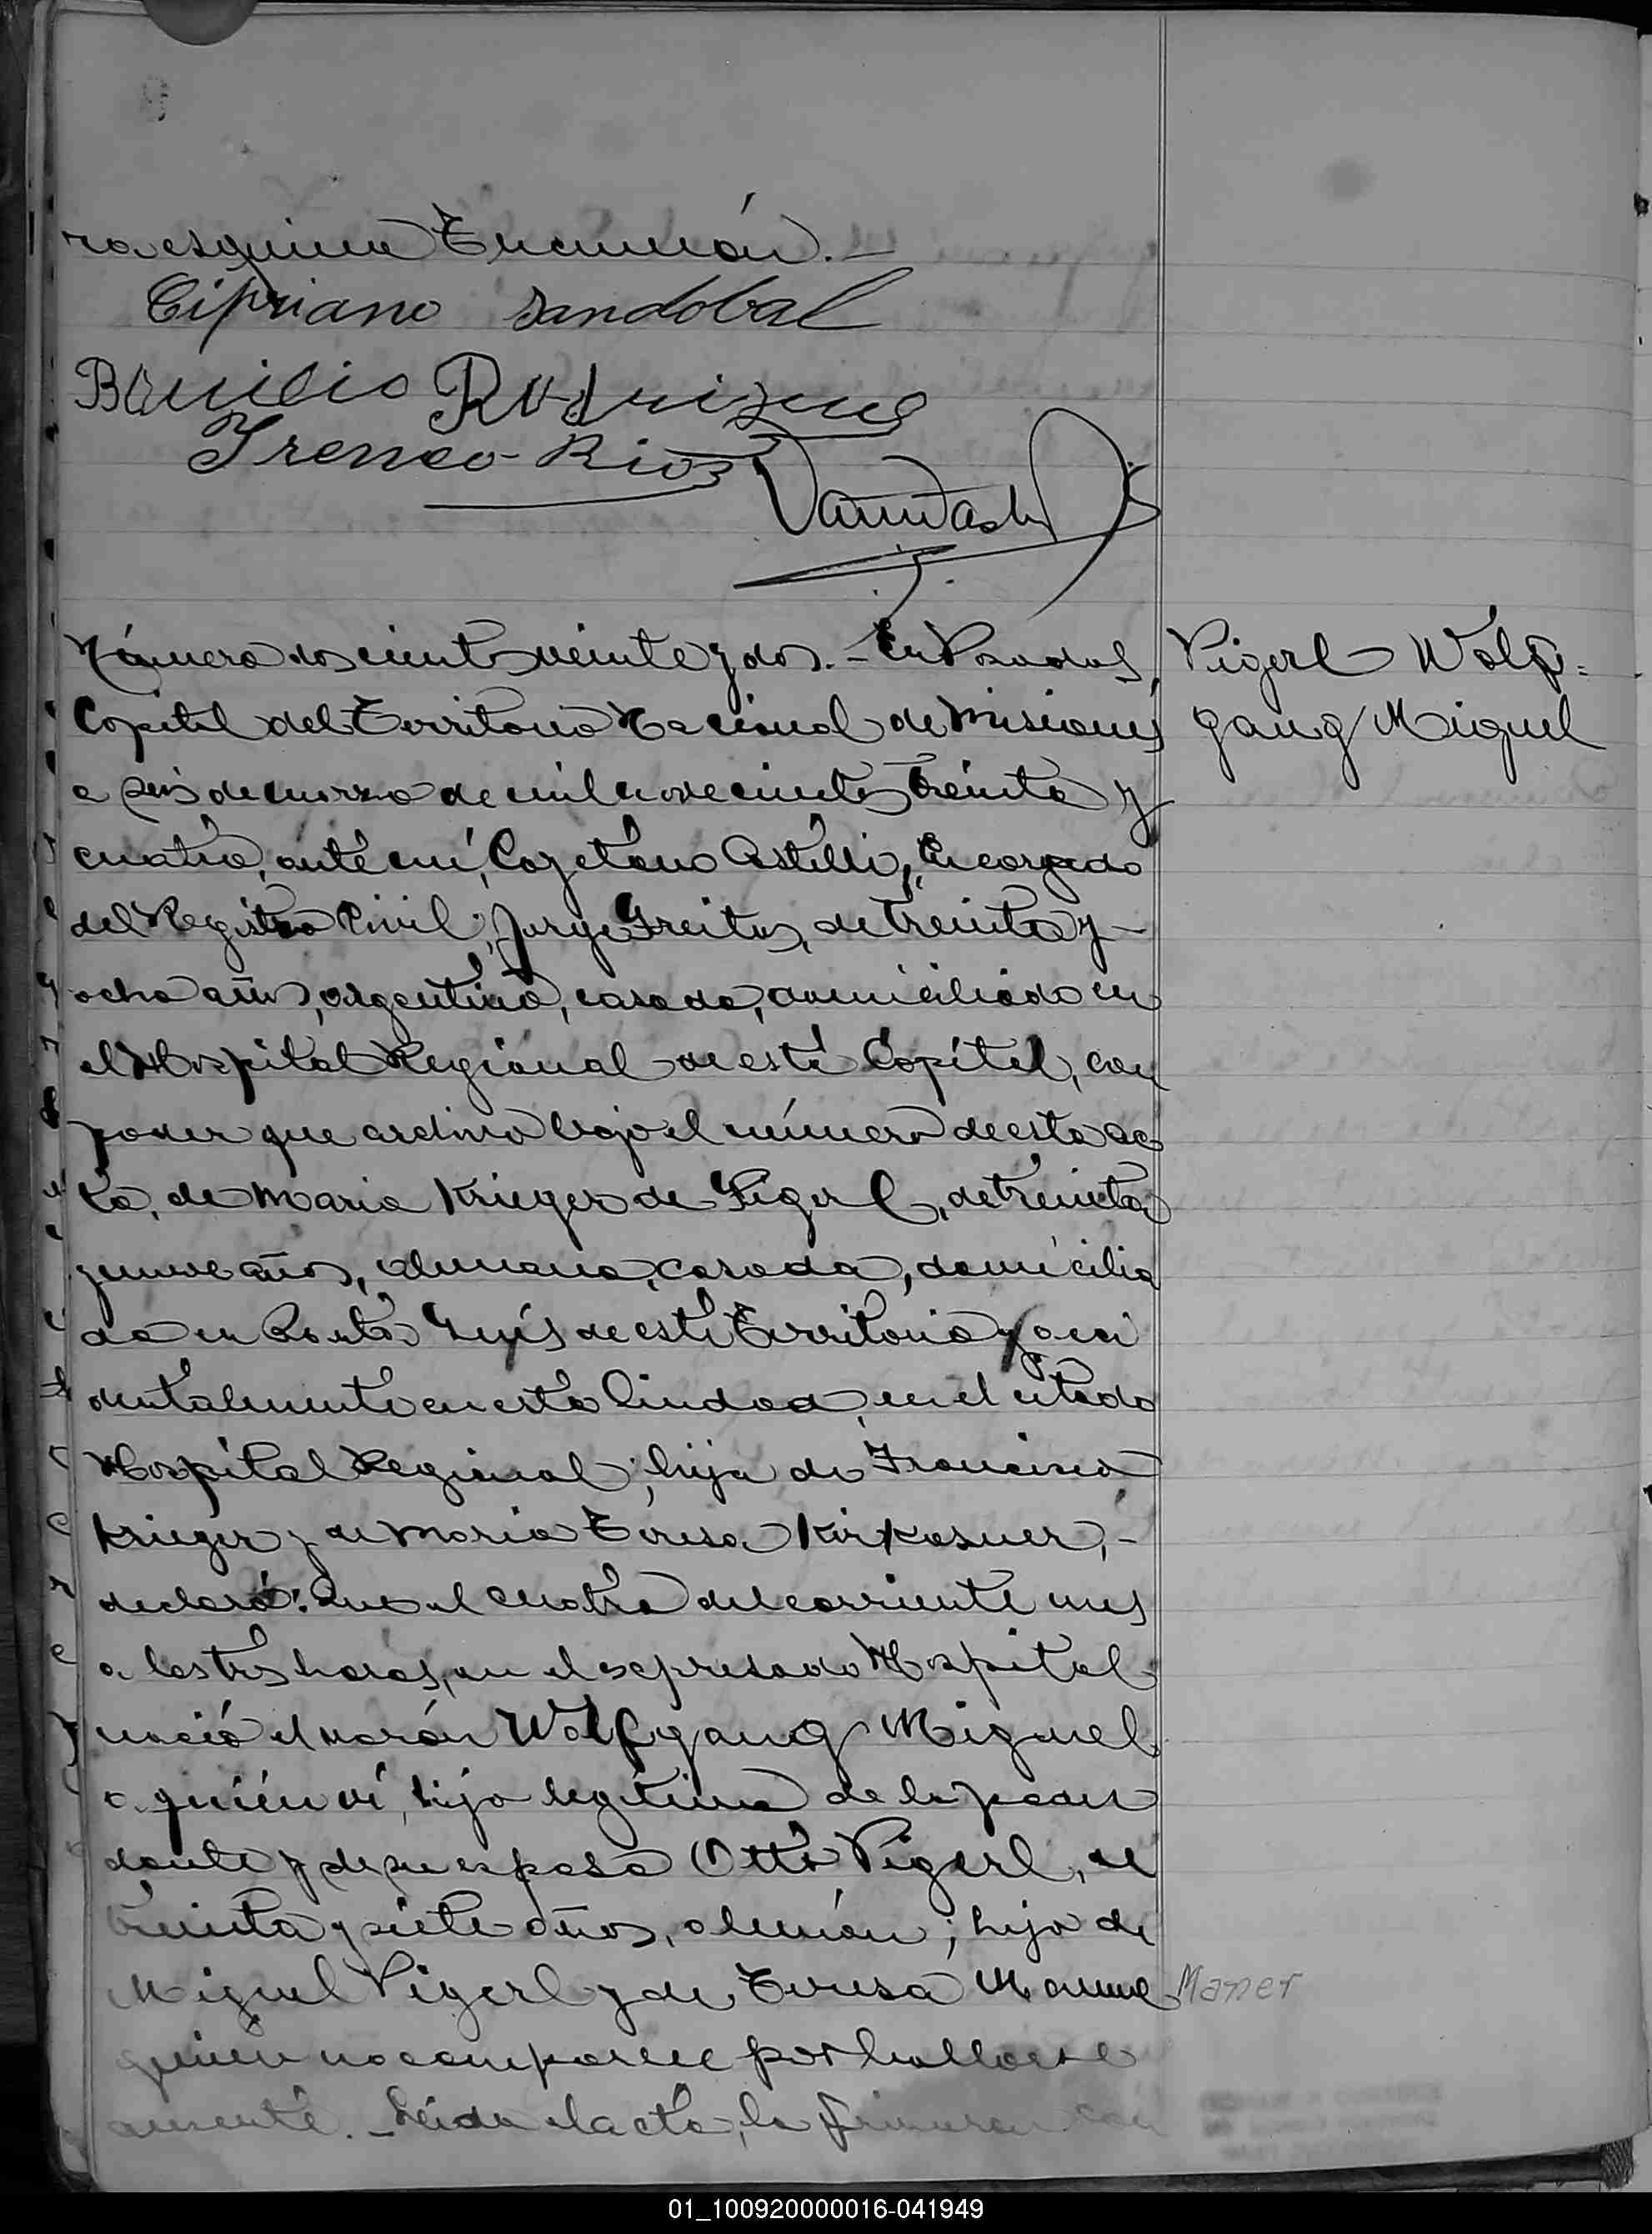 ra esquina Encarnación.-
Cipriano Sandobal
Basilio Rodriguez
Ireneo Rios
Número doscientos veinte y dos.- En Posadas,
Capital del Territorio Nacional de Misiones
a seis de marzo de mil novecientos treinta y
cuatro, ante mí, Cayetano Castelli, Encargado
del Registro Civil; Jorge Freitas, de treinta y
ocho años, argentino, casado, domiciliado en
el Hospital Regional de esta Capital, con
poder que archivo bajo el número de esta ac
ta, de Maria Krieger de Pigerl, de treinta
y nueve años, alemana, casada, domicilia
da en Santo Luís de este Territorio y acci
dentalmente en esta Ciudad, en el citado
Hospital Regional; hija de Francisco
Krieger y de Maria Teresa Kirkasner,-
declaró: Que el cuatro del corriente mes
a las tres horas, en el expresado Hospital
nació el varón Wolfgang Miguel
a quién ví, hijo legítimo de la poder
dante y de su esposo Otto Pigerl, de
treinta y siete años, alemán; hijo de
Miguel Pigerl y de Teresa Manne
quien no comparece por hallarse
ausente.- Leída el acta, la firmaron con
Pigerl Wolf=
gang Miguel
Maner
01_100920000016-041949